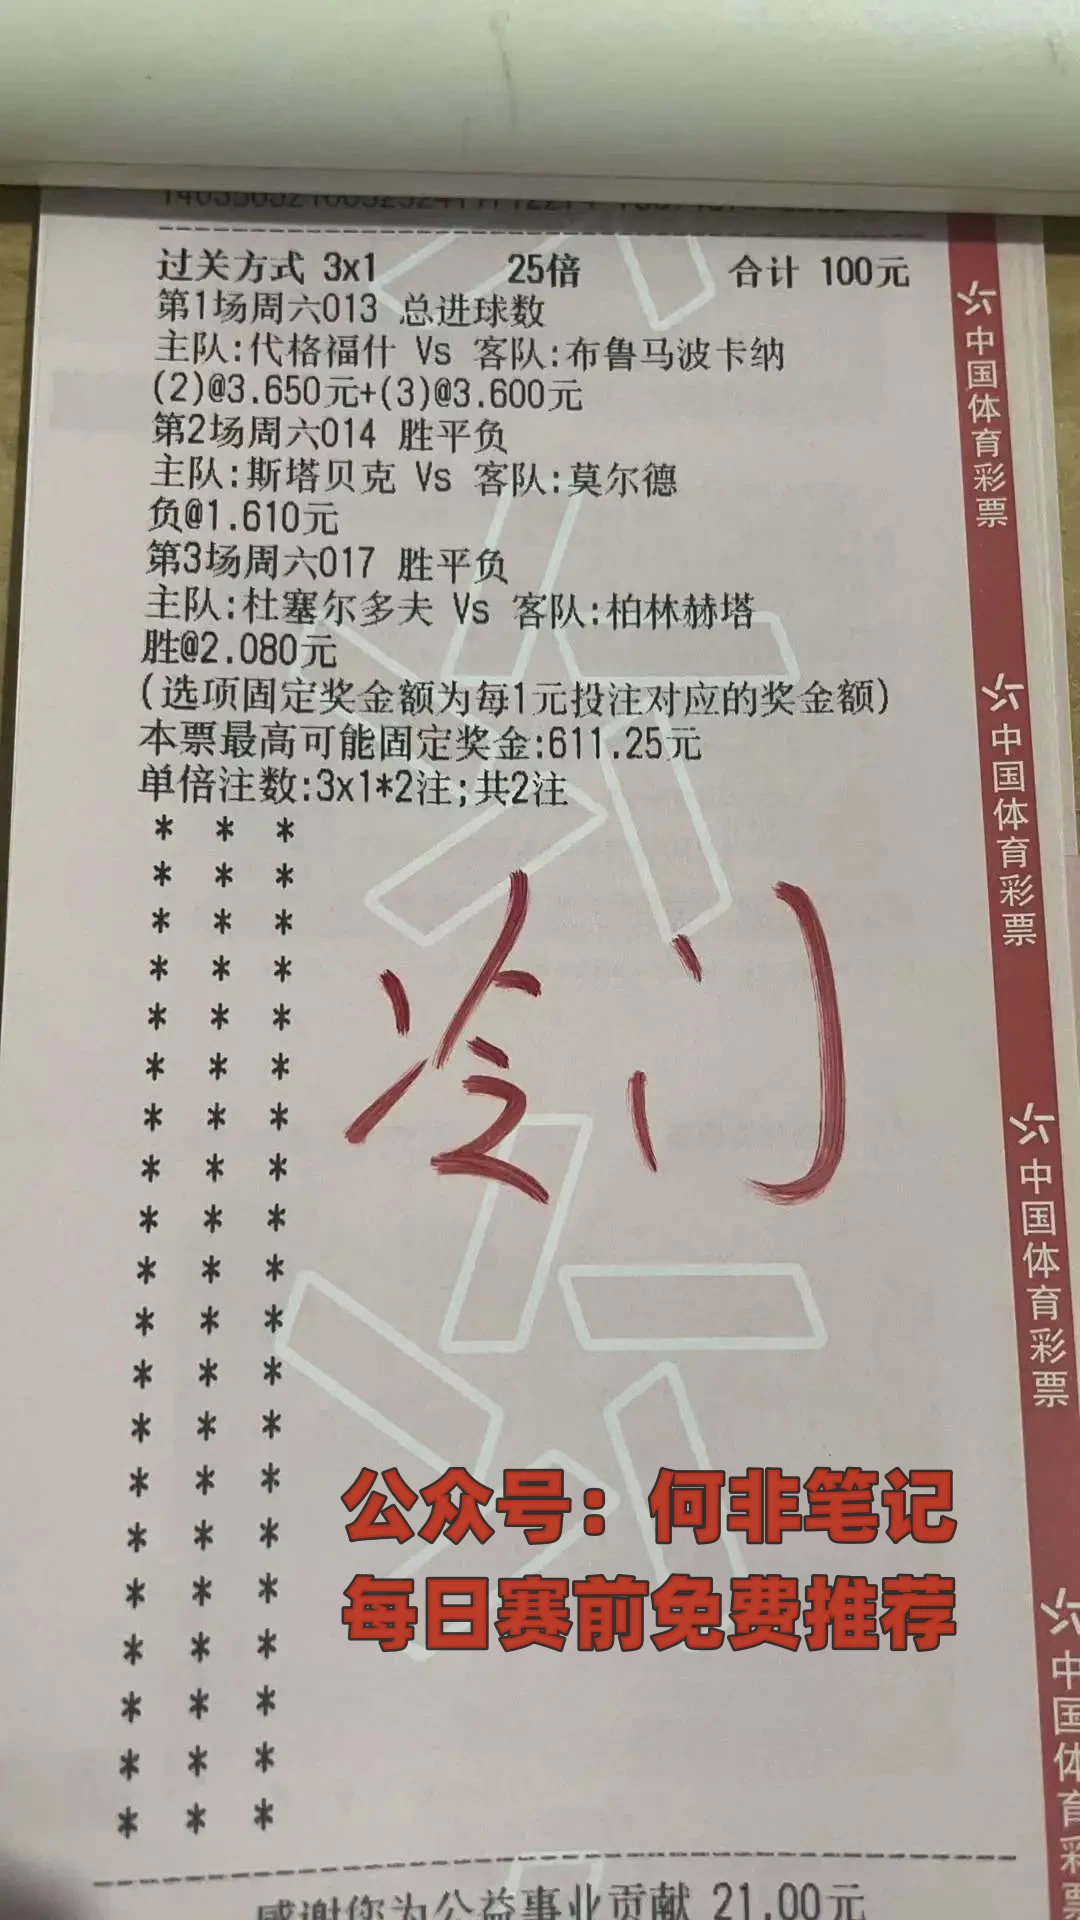 过关方式 3x1 25倍 合计 100元
第1场周六013 总进球数
主队:代格福什 Vs 客队:布鲁马波卡纳
(2)@3.650元+(3)@3.600元
第2场周六014 胜平负
主队:斯塔贝克 Vs 客队:莫尔德
负@1.610元
第3场周六017 胜平负
主队:杜塞尔多夫 Vs 客队:柏林赫塔
胜@2.080元
(选项固定奖金额为每1元投注对应的奖金额)
本票最高可能固定奖金:611.25元
单倍注数:3x1*2注;共2注
* * *
* * *
* * *
* * *
* * *
* * *
* * *
* * *
* * *
* * *
* * *
* * *
* * *
* * *
* * *
* * *
* * *
* * *
* * *
* * *
冷门
公众号：何非笔记
每日赛前免费推荐
感谢您为公益事业贡献 21.00元
中国体育彩票
中国体育彩票
中国体育彩票
中国体育彩票